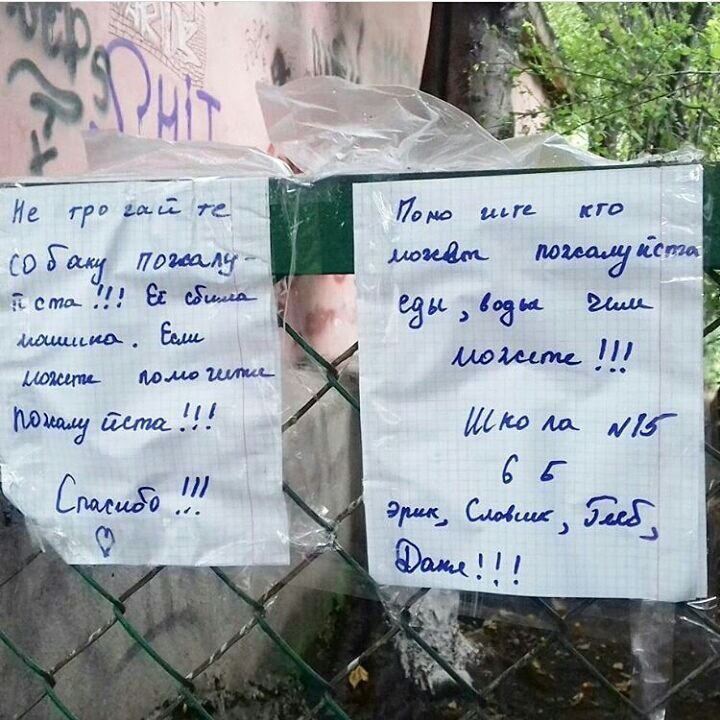 Не трогайте
собаку пожалу-
йста!!! Её сбила
машина. Если
можете помогите
пожалуйста!!!
Спасибо!!!
Помогите кто
может пожалуйста
еды, воды чем
можете!!!
Школа №15
6 Б
Эрик, Славик, Глеб,
Даня!!!